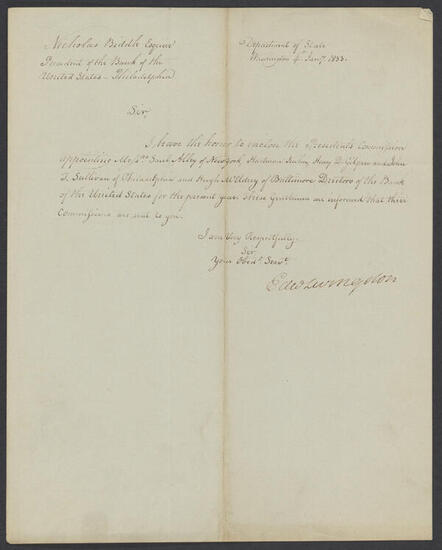 Nicholas Biddle Esquire
President of the Bank of the
United States – Philadelphia
Department of State
Washington 4th Jany. 1833.
Sir,
I have the honor to enclose the President's Commission
appointing Messrs. Saul Alley of New York, Henry D. Gilpin and John
T. Sullivan of Philadelphia and Hugh McElderry of Baltimore Directors of the Bank
of the United States for the present year. These Gentlemen are informed that their
Commissions are sent to you.
I am Very Respectfully.
Sir
Your Obedt. Servt.
Edw Livingston